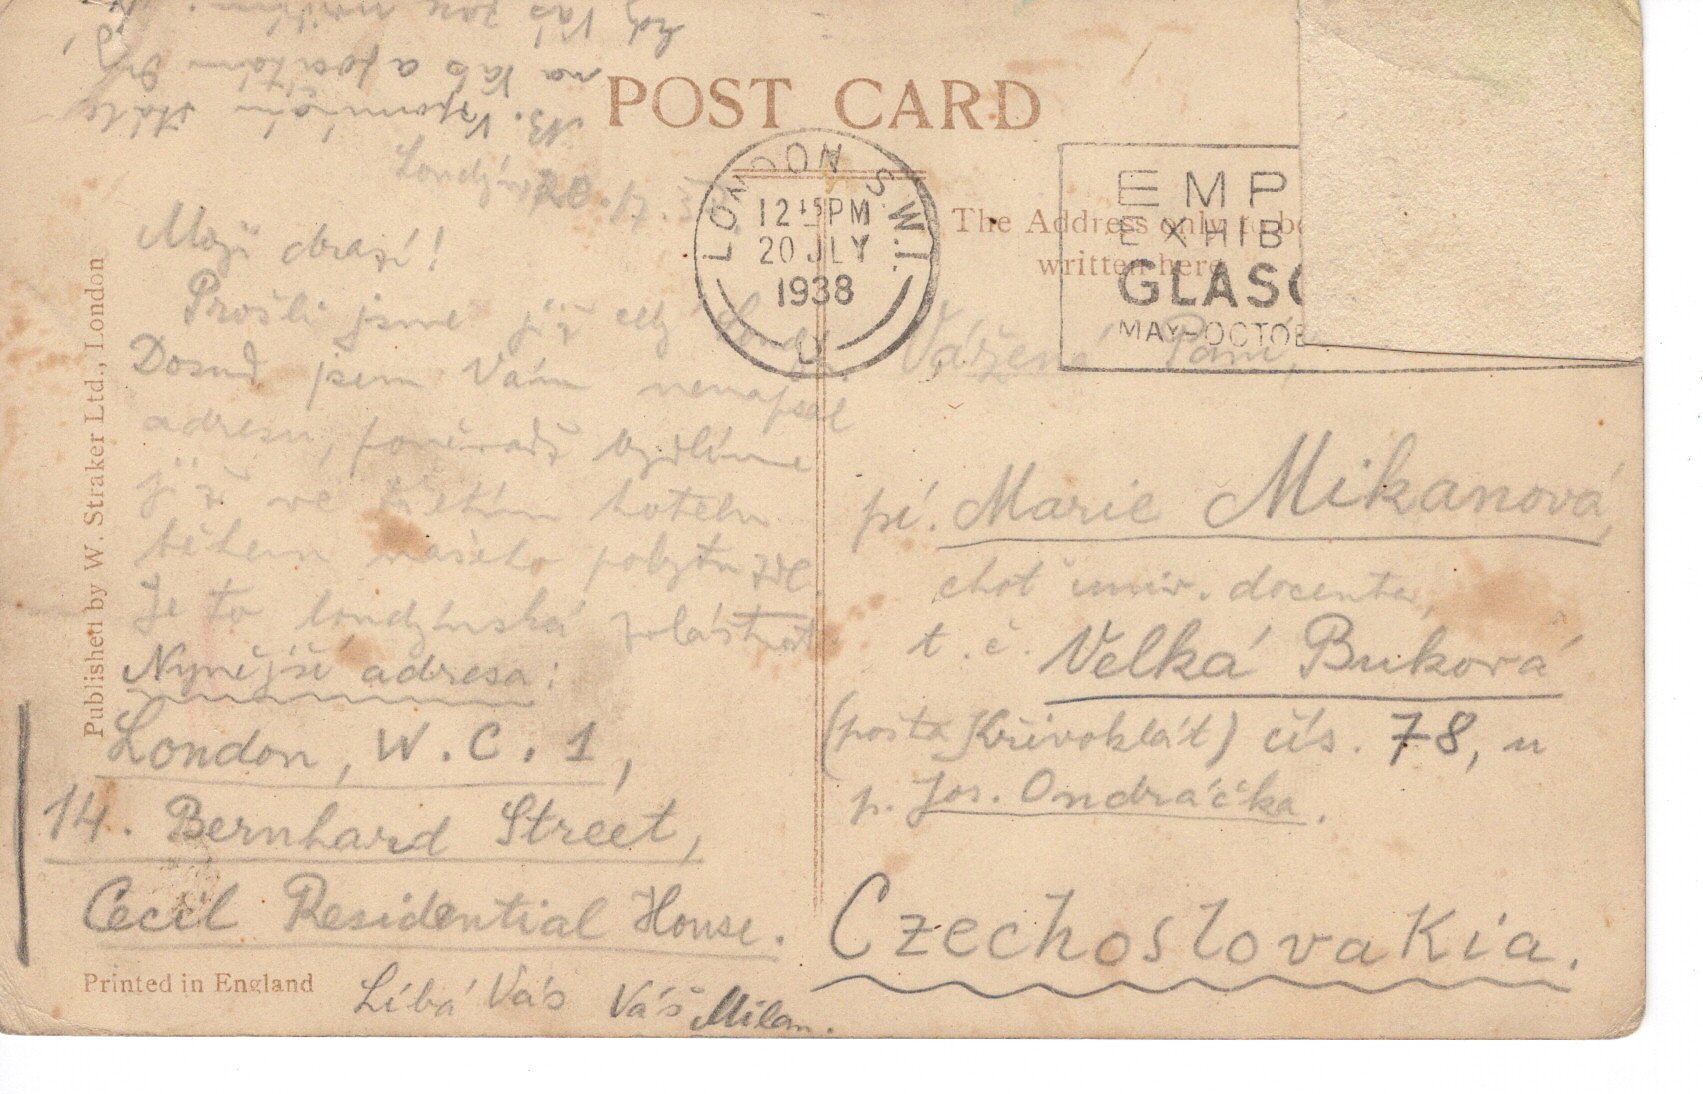 POST CARD
NB. Vzpomínám stále
na Vás a počítám dny,
kdy Vás zas
Londýn, 20./7. 38.
Moji drazí!
Prošli jsme již celý Londýn.
Dosud jsem Vám nenapsal
adresu, poněvadž bydlíme
již ve hotelu
během našeho pobytu zde.
Je to londýnská zvláštnost.
Nynější adresa:
London, W.C.1,
14. Bernhard Street,
Cecil Residential House.
Líbá Vás Váš Milan.
Published by W. Straker Ltd., London
Printed in England
LONDON S.W.1.
12 15 PM
20 JLY
1938
D
EMP
EXHIB
GLASG
MAY-OCTOB
The Address only to be
written here
Vážená Paní,
pí. Marie Mikanová,
choť univ. docenta,
t.č. Velká Buková
(pošta Křivoklát) čís. 78, u
p. Jos. Ondráčka.
Czechoslovakia.